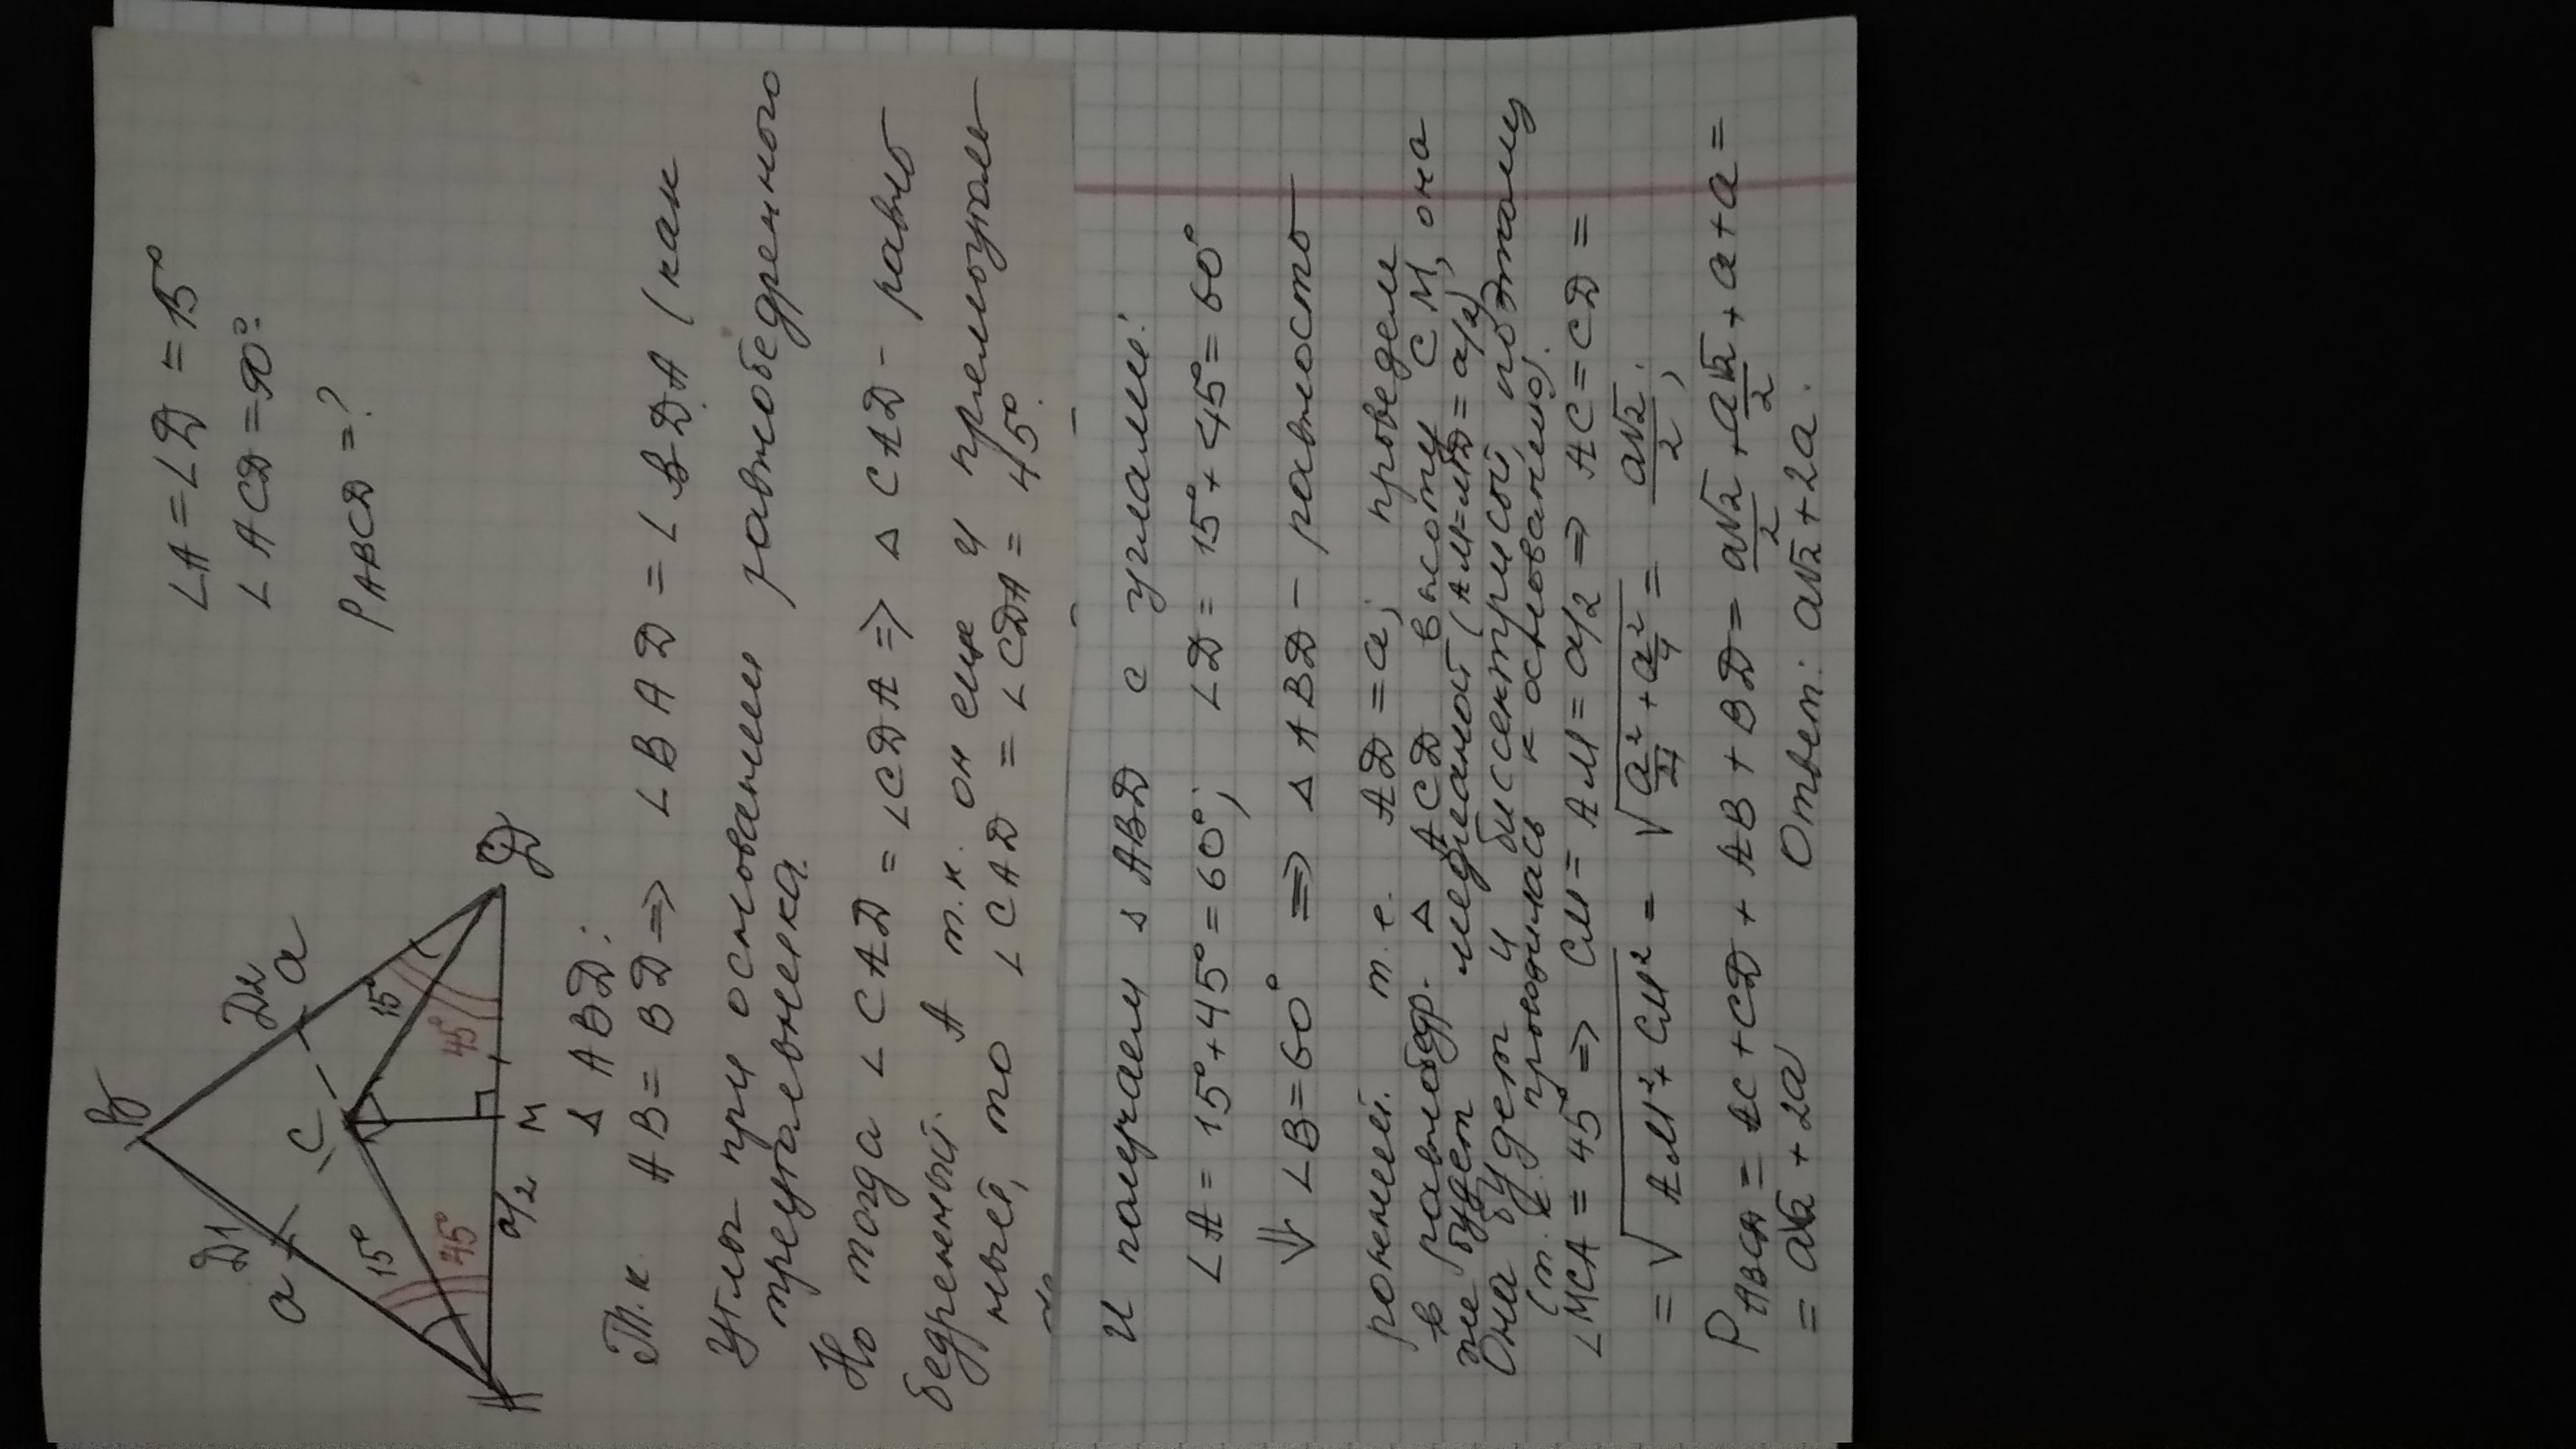 ∠A = ∠D = 15°
∠ACD = 90°.
P ABCD = ?
B
D1
D2
a
a
C
15°
15°
45°
45°
A
a/2
M
D
△ ABD:
Т.к AB = BD => ∠BAD = ∠BDA (как
углы при основании равнобедренного
треугольника.
Но тогда ∠CAD = ∠CDA => △ CAD - равно
бедренный. А т.к. он еще и прямоуголь
ный, то ∠CAD = ∠CDA = 45°.
И получаем △ ABD с углами:
∠A = 15°+45° = 60°; ∠D = 15°+45° = 60°
⇓ ∠B = 60° => △ ABD - равносто
ронний. т.е. AD = a; проведем
в равнобедр. △ ACD высоту CM, она
же будет медианой (AM=MD=a/2)
Она будет и биссектрисой, поэтому
(т.к. проводилась к основанию).
∠MCA = 45° => CM = AM = a/2 => AC = CD =
= √AM² + CM² = √a²/4 + a²/4 = a√2/2;
P ABCD = AC + CD + AB + BD = a√2/2 + a√2/2 + a + a =
= a√2 + 2a Ответ: a√2 + 2a.